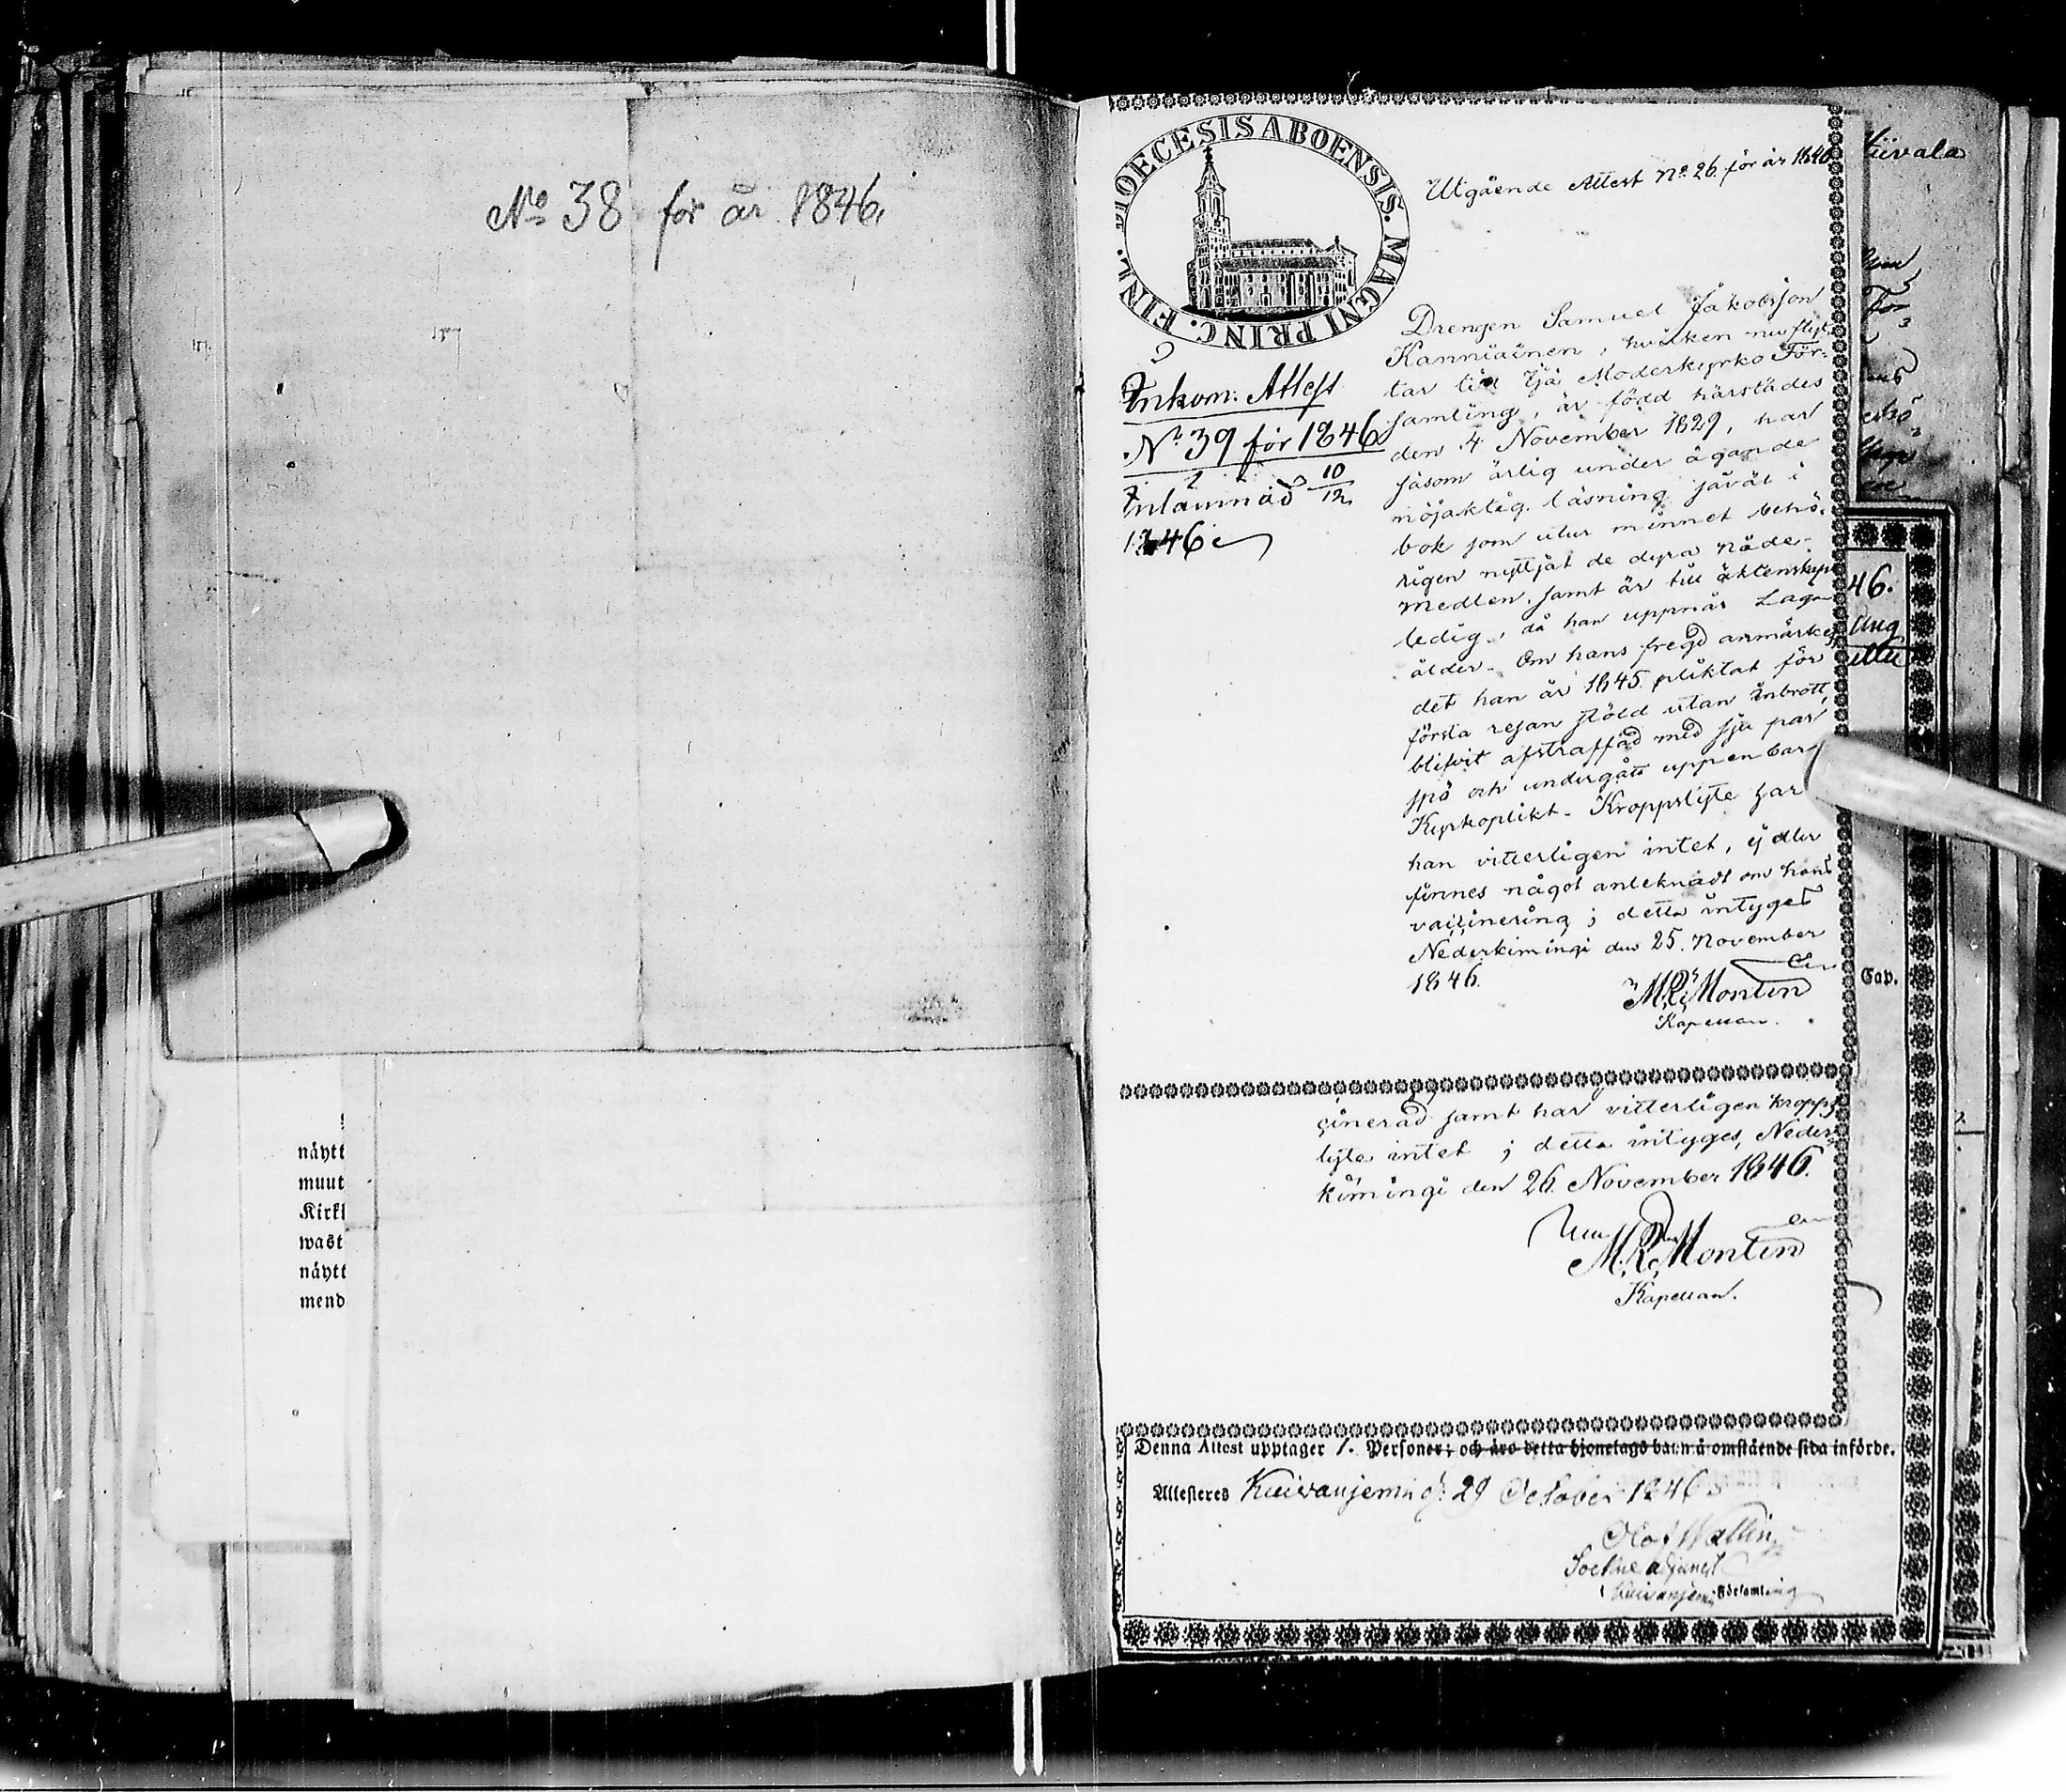 No 38 för år 1846.
näytt
muut
Kirk
wast
näytt
mend
DIOECESIS ABOENSIS. MAGNI PRINC. FINL.
Utgående Attest No 26 för år 1846
Inkom: Attest
No 39 för 1846
Inlämnad 10/12
1846
Drengen Samuel Jakobsson
Kanniainen, hvilken nu flyt-
tar till Ijå Moderkyrko För-
samling, är född härstädes
den 4 November 1829, har
såsom ärlig under ägande
nöjaktig läsning såväl i
bok som utur minnet behö-
rigen nyttjat de dyra Nåde-
medlen, samt är till äktenskap
ledig, då han uppnår Laga
ålder. Om hans fregd anmärkes
det han år 1845 pliktat för
första resan stöld utan inbrott,
blifvit afstraffad med sju par
spö och undergått uppenbar
Kyrkoplikt. Kroppslyte har
han vitterligen intet, ej eller
finnes något anteknadt om hans
vaccinering; detta intyges
Nederkimingi den 25. November
1846.
M. R. Montin
Kapellan.
cinerad samt har vitterligen kropps
lyte intet; detta intyges, Neder-
kimingi den 26. November 1846.
M. R. Montin
Kapellan.
Denna Attest upptager 1. Personer; och äro detta hjonelags barn å omstående sida införde.
Attesteres Kuivaniemi d: 29 October 1846
Olof Wallin
Sockne adjunct
i Kuivaniemi Församling
46.
Aug
Cap.